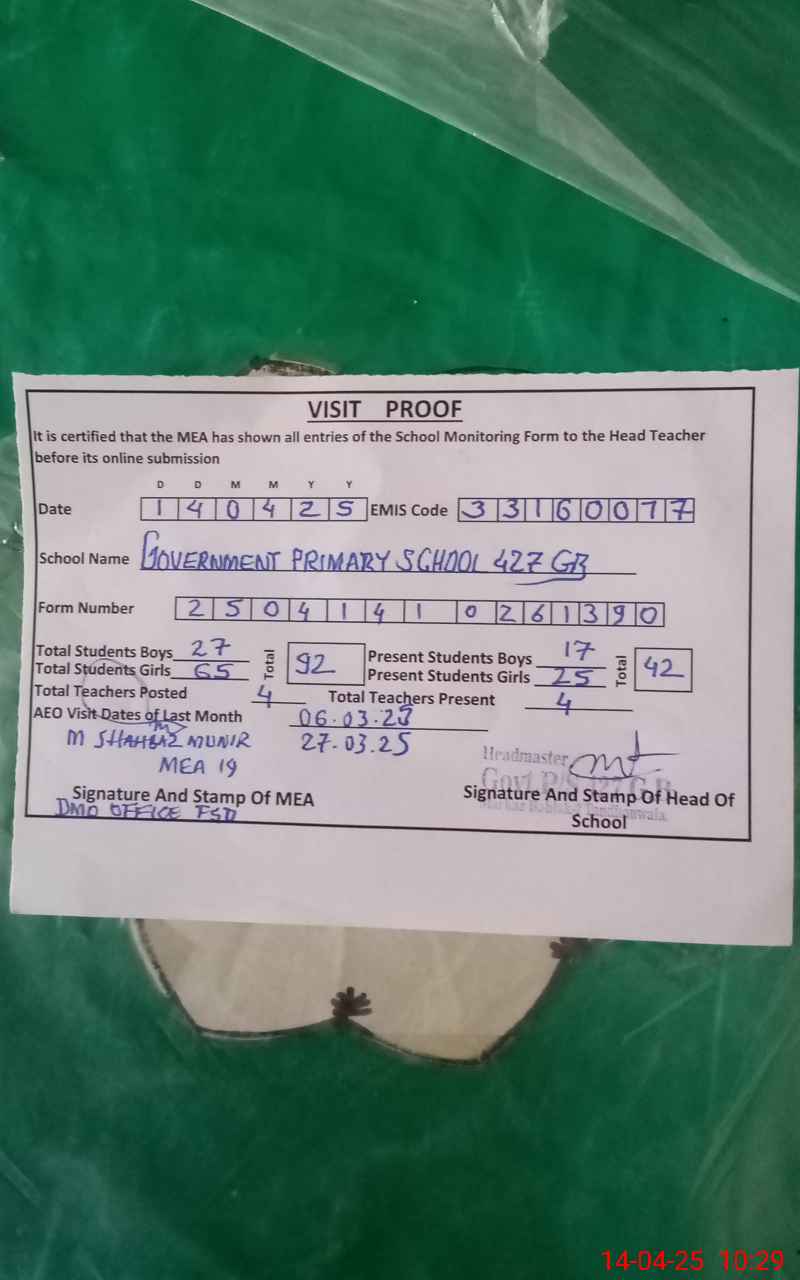 VISIT PROOF
It is certified that the MEA has shown all entries of the School Monitoring Form to the Head Teacher
before its online submission
D D M M Y Y
Date 1 4 0 4 2 5 EMIS Code 3 3 1 6 0 0 7 7
School Name GOVERNMENT PRIMARY SCHOOL 427 GB
Form Number 2 5 0 4 1 4 1 0 2 6 1 3 9 0
Total Students Boys 27 Total 92 Present Students Boys 17 Total 42
Total Students Girls 65 Present Students Girls 25
Total Teachers Posted 4 Total Teachers Present 4
AEO Visit Dates of Last Month 06.03.25
M SHAHBAZ MUNIR 27.03.25
MEA 19 Headmaster
Govt P/S 427 G.B
Signature And Stamp Of MEA Signature And Stamp Of Head Of
DMO OFFICE FSD School
14-04-25 10:29